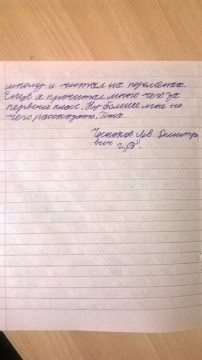 школу и читал на переменах.
Ещё я прочитал много чего за
первый класс. Ну больше мне не
чего рассказать.
Лев Дмитри
вич 2 "В".